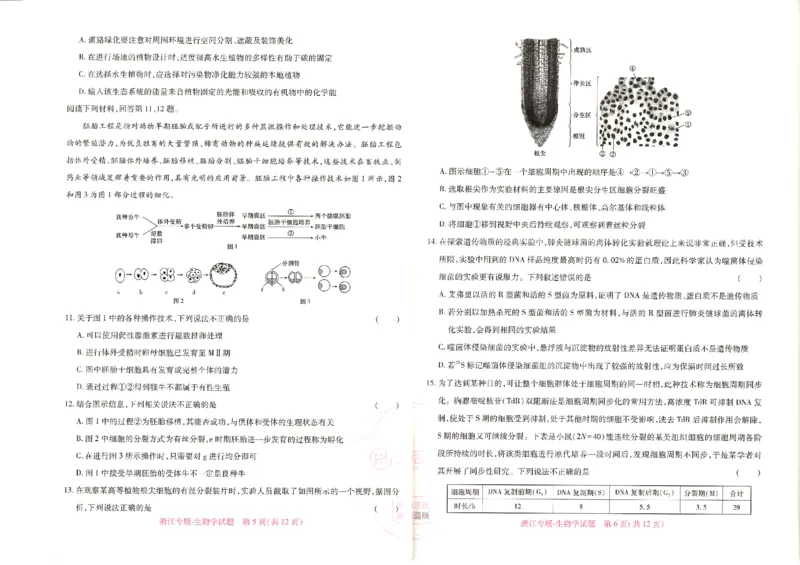 A. 道路绿化要注意对周围环境进行空间分割、遮蔽及装饰美化
B. 在进行场地的植物设计时,适度提高水生植物的多样性有助于碳的固定
C. 在选择水生植物时,应选择对污染物净化能力较强的本地植物
D. 输入该生态系统的能量来自植物固定的光能和吸收的有机物中的化学能
阅读下列材料,回答第11、12题。
胚胎工程是指对动物早期胚胎或配子所进行的多种显微操作和处理技术,它能进一步挖掘动
物的繁殖潜力,为优良牲畜的大量繁殖、稀有动物的种族延续提供有效的解决办法。胚胎工程包
括体外受精、胚胎体外培养、胚胎移植、胚胎分割、胚胎干细胞培养等技术,这些技术在畜牧业、制
药业等领域发挥着重要的作用,具有光明的应用前景。胚胎工程中各种操作技术如图1所示,图2
和图3为图1部分过程的细化。
良种公牛
良种母牛
体外受精
超数
排卵
多个受精卵
胚胎体
外培养
早期囊胚 ① 两个健康胚胎
早期囊胚 胚胎干细胞培养 胚胎干细胞
早期囊胚 ② 小牛
图1
分割针
a b c d e
f g
图2
图3
11. 关于图1中的各种操作技术,下列说法不正确的是 ( )
A. 可以使用促性腺激素进行超数排卵处理
B. 进行体外受精时卵母细胞已发育至MⅡ期
C. 图中胚胎干细胞具有发育成完整个体的潜力
D. 通过过程①②得到犊牛不都属于有性生殖
12. 结合图示信息,下列相关说法不正确的是 ( )
A. 图1中的过程②为胚胎移植,其能否成功,与供体和受体的生理状态有关
B. 图2中细胞的分裂方式为有丝分裂,e时期胚胎进一步发育的过程称为孵化
C. 在进行图3所示操作时,只需要对g进行均分即可
D. 图1中接受早期胚胎的受体牛不一定是良种牛
13. 在观察某高等植物根尖细胞的有丝分裂装片时,实验人员截取了如图所示的一个视野,据图分
析,下列说法正确的是 ( )
浙江专版·生物学试题 第5页(共12页)
成熟区
伸长区
分生区
根冠
根尖
④
⑤
①
③ ②
A. 图示细胞①~⑤在一个细胞周期中出现的顺序是④→②→①→⑤→③
B. 选取根尖作为实验材料的主要原因是根尖分生区细胞分裂旺盛
C. 与图中现象有关的细胞器有中心体、核糖体、高尔基体和线粒体
D. 将细胞①移到视野中央后持续观察,可观察到着丝粒分裂
14. 在探索遗传物质的经典实验中,肺炎链球菌的离体转化实验就理论上来说非常正确,但受技术
所限,实验中用到的DNA样品纯度最高时仍有0.02%的蛋白质,因此科学家认为噬菌体侵染
细菌的实验更有说服力。下列叙述错误的是 ( )
A. 艾弗里以活的R型菌和活的S型菌为原料,证明了DNA是遗传物质、蛋白质不是遗传物质
B. 若分别以加热杀死的S型菌和活的S型菌为材料,与活的R型菌进行肺炎链球菌的离体转
化实验,会得到相同的实验结果
C. 噬菌体侵染细菌的实验中,悬浮液与沉淀物的放射性差异无法证明蛋白质不是遗传物质
D. 若³⁵S标记噬菌体侵染细菌组的沉淀物中出现了较强的放射性,应为保温时间过长所致
15. 为了达到某种目的,可让整个细胞群体处于细胞周期的同一时相,此种技术称为细胞周期同步
化。胸腺嘧啶核苷(TdR)双阻断法是细胞周期同步化的常用方法,高浓度TdR可抑制DNA复
制,使处于S期的细胞受到抑制,处于其他时期的细胞不受影响,洗去TdR后抑制作用会解除,
S期的细胞又可继续分裂。下表是小鼠(2N=40)能连续分裂的某类组织细胞的细胞周期各阶
段所持续的时长,将该类组织进行原代培养一段时间后,发现细胞周期不同步,于是某学者对
其开展了同步性研究。下列说法不正确的是 ( )
细胞周期 DNA复制前期(G₁) DNA复制期(S) DNA复制后期(G₂) 分裂期(M) 合计
时长/h 12 8 5.5 3.5 29
浙江专版·生物学试题 第6页(共12页)